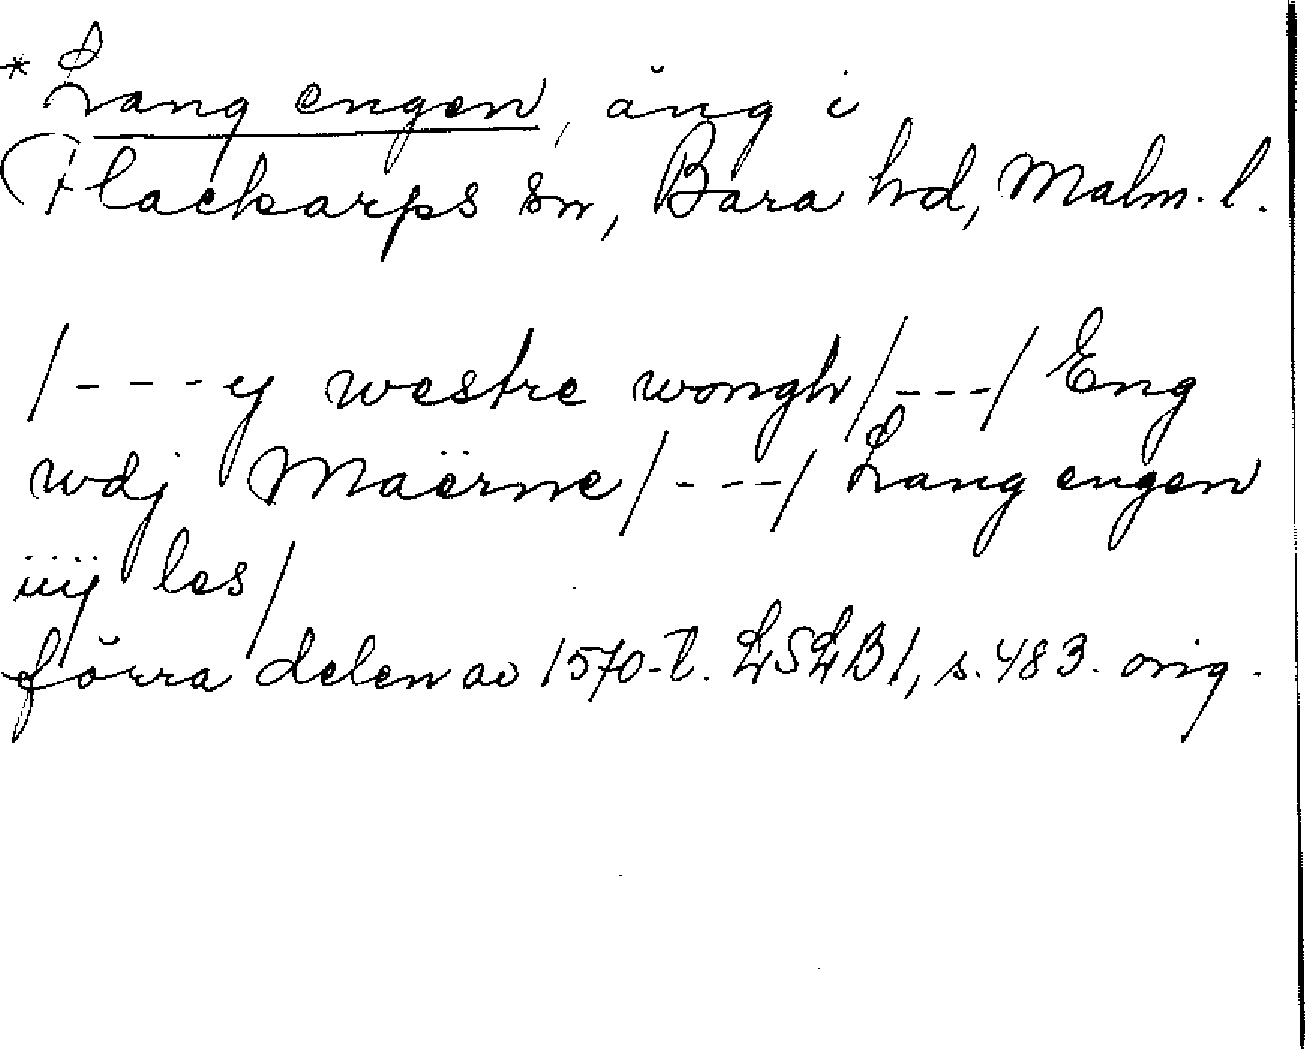 * Lang engen, äng i
Flackarps sn, Bara hd, Malm. l.
/---y westre wongh/---/ Eng
wdj Maërne/---/ Lang engen
iiij les/
förra delen av 1570-t. LSLB1, s. 483. orig.